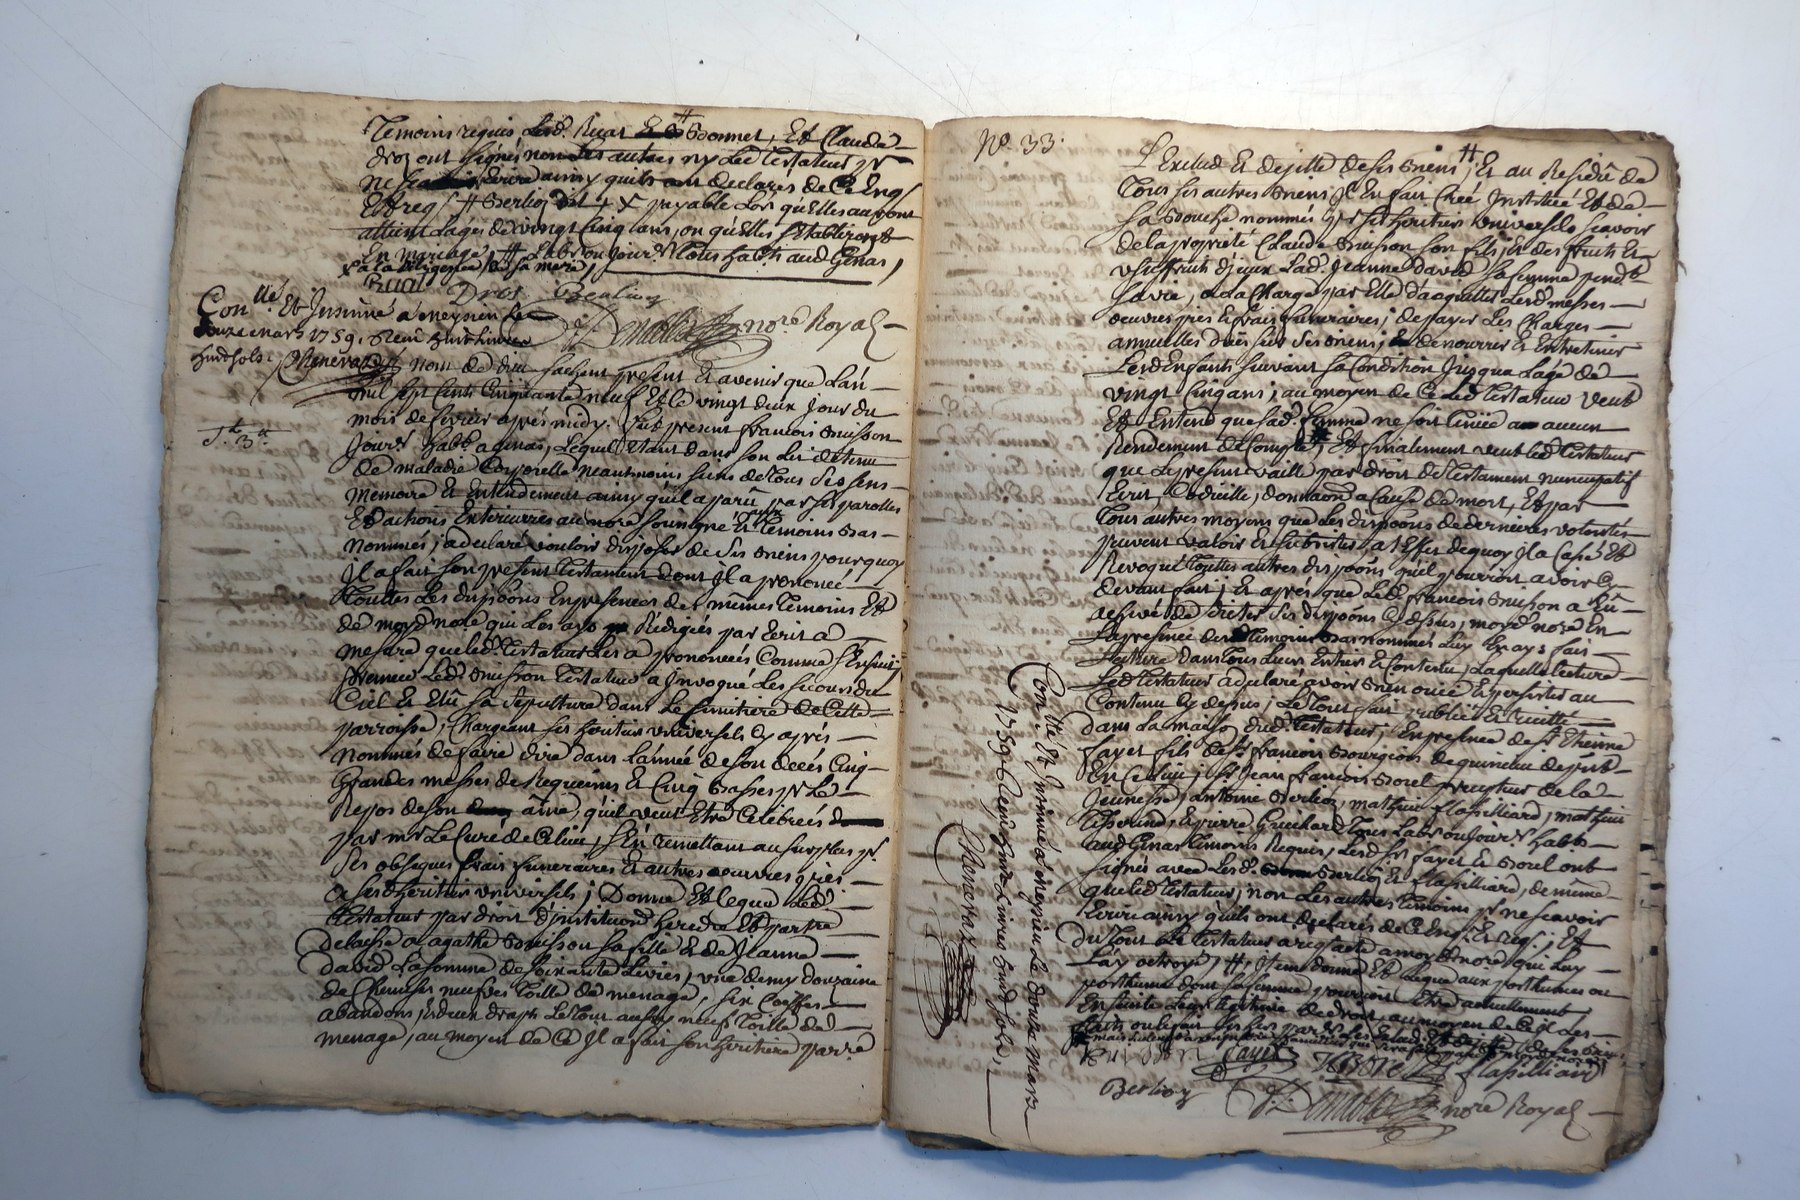 Temoins requis Lesd. Ruat Et Bonnet, Et Claude
droz ont signés non Les autres ny Led testateur pr
ne scavoir Ecrire ainsy quils ont declarés de Ce Enq
Et req / # Berlioz dit / X payable Lors qu'Elles auront
attient L'agés de vingt Cinq ans, ou qu'Elles s'Etabliront
En Mariage, # Labr ou Jour.r tous hab.ts aud Genas,
X a la diligence de sa mere,
Ruat Droz Berlioz
no.re Royal
Con.llé Et Insinué a meysieu Le
douze mars 1759. Reçu
huit sols. Chenevaz
Au Nom de dieu sachent present Et avenir que L'an
mil sept Cents Cinquante neuf Et le vingt deux Jour du
mois de fevrier aprés midy. fut present francois Buisson
Jour.r habt a genas, Lequel Etant dans son Lit detenu
de maladie Corporelle neantmoins sains de tous ses sens
Memoire Et Entendement ainsy qu'il a paru par ses parolles
Et actions Exterieures au no.re soussigné Et aux Temoins bas
nommés, a declaré vouloir disposer de ses Biens pourquoy
Il a fait son present testament dont Il a prononcé
touttes Les dispoons En presence des mêmes Temoins Et
de moyd no.re qui Les ays Redigées par Ecrit a
mesure que led. testateur Les a prononcées Comme s'Ensuit,
Premier Led. Buisson testateur a Invoqué Les secours du
Ciel Et Elû sa sepulture dans Le simitiere de Cette
parroisse, Chargeant ses heritiers universels Cy aprés
Nommés de faire dire dans L'année de son decés Cinq
Grandes messes de Requiems Et Cinq Basses pr Le
Repos de son âme, qu'il veut Etre Celebrées
par mr. Le Curé de Celieu, s'En remettant au surplus pr.
ses obseques frais funeraires Et autres oeuvres pies
a sesd heritiers universels; Donne Et legue Led.
testateur par droit d'institution heredre Et part re
delaisse a agathe Buisson sa fille Et de Jeanne
david La somme de soixante Livres, une demy douzaine
de Chemises neufves toille de menage, six Coeffes
abandons, Et deux draps Le tout aussy neuf toille de
menage, au moyen de Ce Il a fait son heritiere parre
No. 33.
L'Exclud Et dejette de ses Biens; # Et au Residû de
tous ses autres Biens Il En fait Creé Institué Et de
sa Bouche nommés pr ses heritiers universels scavoir
de la proprieté Claude Buisson son fils, Et des fruits Et
usuffruit d'jeux Lad. Jeanne david sa femme pendt
sa vie, a la Charge par Elle d'acquitter Lesd. messes
oeuvres pies Et frais funeraires; de payer Les Charges
annuelles dües sur ses Biens, de nourrir Et Entretenir
Lesd Enfants suivant sa Condition Jusqua L'age de
vingt Cinq ans; au moyen de Ce Led testateur veut
Et Entend que sad. femme ne soit tenüe a aucun
Rendement de Compte, Et finalement veut Led testateur
que Le present vaille par droit de testament nuncupatif
Ecrit, Codicille, donnaon a Cause de mort, Et par
tous autres moyens que Les dispoons de dernieres volontés
peuvent valoir Et subsister, a L'Effet dequoy Il a Cassé Et
Revoqué touttes autres dispoons qu'il pourroit avoir Cy
devant fait; Et aprés que Led. francois Buisson a Eû
achevé de dicter ses dispoons Cy dessus, moyd. no.re En
La presence desd temoins Bas nommés Luy En ays fait
Lecture dans tous Leurs Entier Et Contenu, Laquelle lecture
Led testateur a declaré avoir Bien ouie Et persister au
Contenu Cy dessus; Le tout fait publié Et recitté
dans La maison dud. testateur; En presence de sr Etienne
fayet fils de sr. francois Bourgeois de
En Celieu; sr. Jean francois Borel precepteur de la
Jeunesse, antoine Berlioz, mathieu flassilliard, mathieu
Et pierre Guichard tous Labr ou Jour.r habts
aud Genas temoins Requis, Lesd srs fayet Et Borel ont
signés avec Lesd. Berlioz Et flassilliard, de meme
que Led testateur, non Les autres temoins pr ne scavoir
Ecrire ainsy qu'ils ont declarés de Ce Enq. Et Req.; Et
du tout Le testateur a req. acte a moyd no.re qui Luy
L'ay octroyé, # Item donne Et legue aux posthumes ou
posthume dont sa femme pourroit Etre actuellement
Enceinte Leur Legitime de droit, au moyen de Ce Il Les
fayet Borel flassilliard
Berlioz no.re Royal
Con.llé Et Insinué a Meysieu Le douze mars
1759. Reçu
Chenevaz